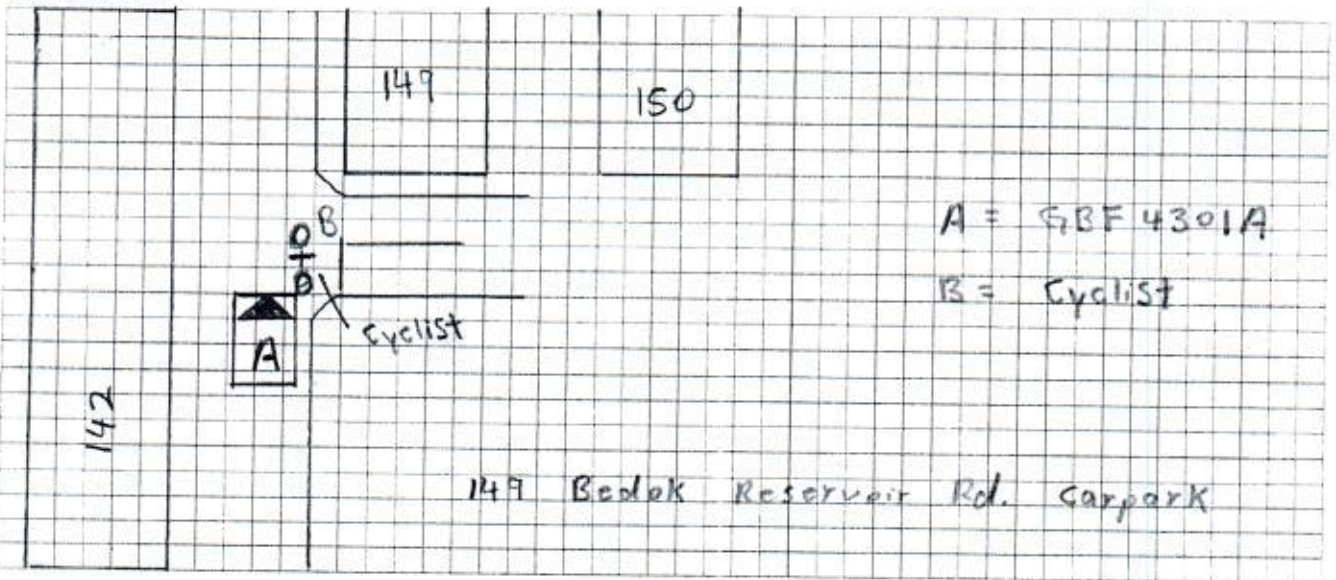 149
150
B
A = GBF 4301A
B = Cyclist
Cyclist
A
142
149 Bedok Reservoir Rd. Carpark